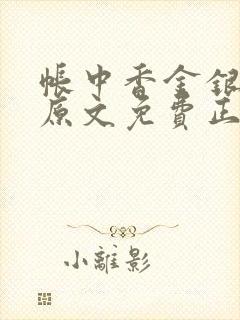 帳中香金銀
原文免費正
小離影